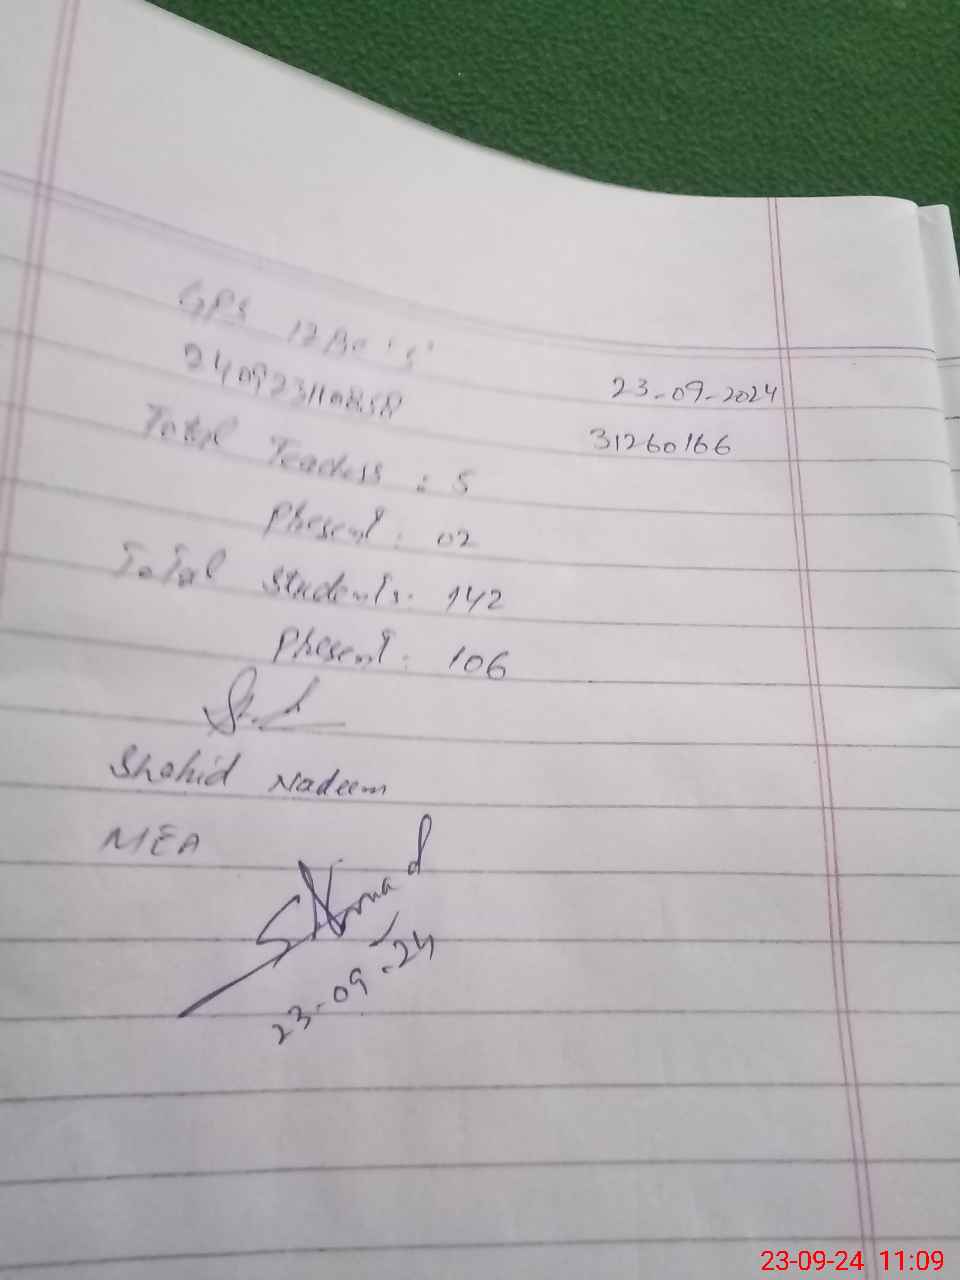 GPS 12 BC
23-09-2024
240923110858
31260166
Total Teachers : 5
Present : 02
Total Students : 142
Present : 106
Shahid Nadeem
MEA
SAhmad
23-09-24
23-09-24 11:09